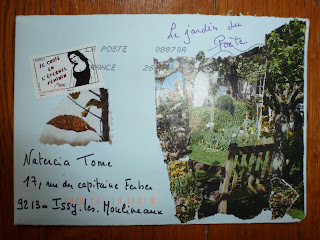 LA POSTE 08870A
FRANCE 26
Le jardin du
Poète
JE CROIS EN
L'ÉTERNEL
FÉMININ
Natercia Tome
17, rue du capitaine Ferber
92130 Issy. les. Moulineaux